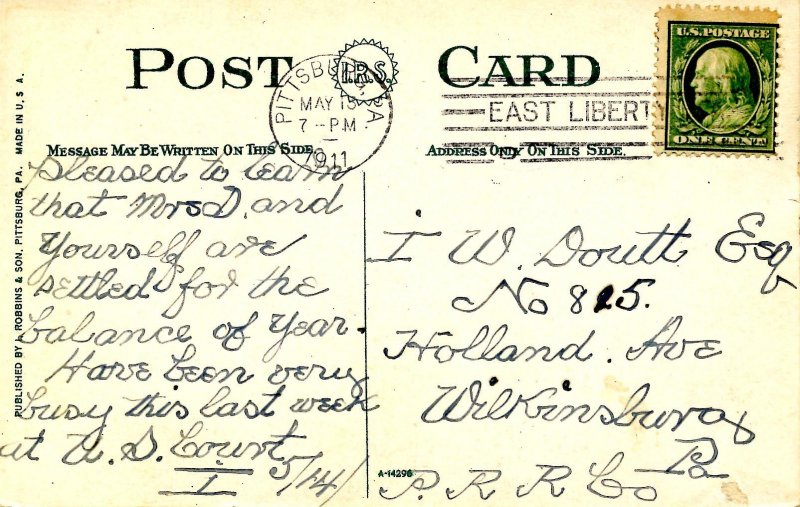 POST CARD
I.R.S.
PITTSBURG, PA
MAY 15
7-PM
1911
EAST LIBERTY
U.S. POSTAGE
ONE CENT
MESSAGE MAY BE WRITTEN ON THIS SIDE
ADDRESS ONLY ON THIS SIDE.
PUBLISHED BY I. ROBBINS & SON, PITTSBURG, PA. MADE IN U. S. A.
Pleased to learn
that Mrs D. and
Yourself are
settled for the
balance of Year.
Have been very
busy this last week
at U. S. Court
I 5/14/
I W. Doutt Esq
No 815.
Holland. Ave
Wilkinsburg
Pa
P. R R Co
A-14296